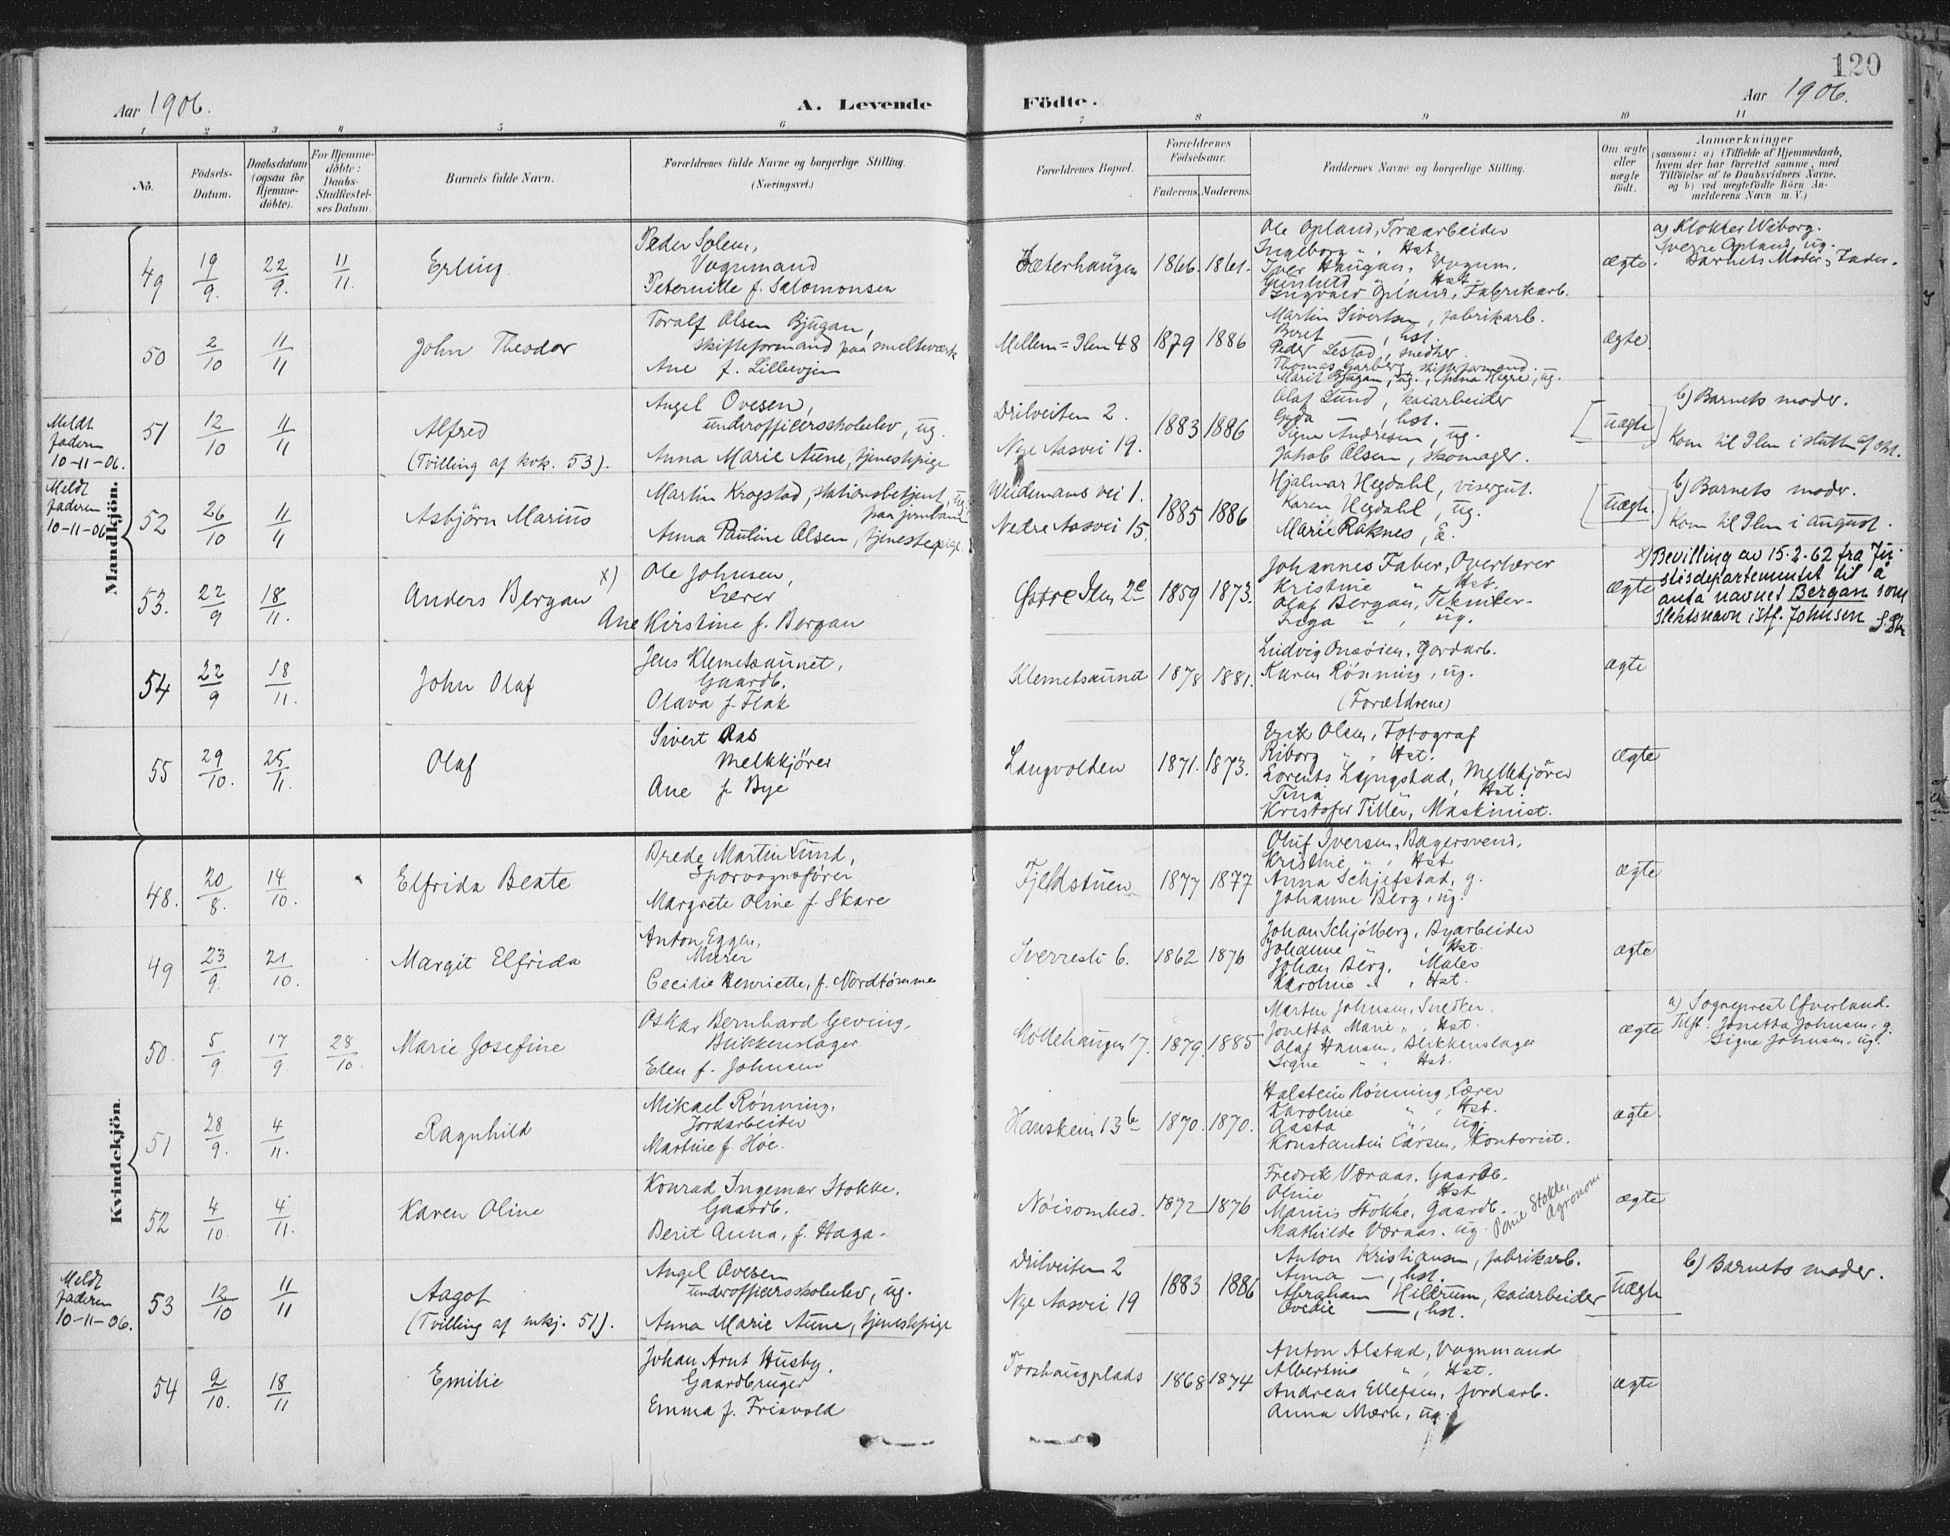 120
Aar 1906.
A. Levende Födte.
Aar 1906.
1 2 3 4 5 6 7 8 9 10 11
No.
Födsels-Datum.
Daabsdatum (ogsaa for Hjemme-döbte).
For Hjemme-döbte: Daabs-Stadfæstel-ses Datum.
Barnets fulde Navn.
Forældrenes fulde Navne og borgerlige Stilling. (Næringsvei.)
Forældrenes Bopæl.
Forældrenes Födselsaar.
Faderens. Moderens.
Faddernes Navne og borgerlige Stilling.
Om ægte eller uægte födt.
Anmærkninger
(saasom: a) i Tilfælde af Hjemmedaab,
hvem der har forrettet samme, med
Tilföielse af to Daabsvidners Navne,
og b) ved uægtefödte Börn An-
melderens Navn m. V.)
Mandkjön.
49 19/9. 22/9. 11/11.
Erling
Peder Solem,
Vognmand
Peternille f. Salomonsen
Sæterhaugen 1866. 1861.
Ole Opland, Træarbeider
Ingeborg " , Hst.
Iver Haugan, Vognm.
Gunhild " , Hst.
Ingvald Opland, Fabrikarb.
ægte.
a) Klokker Wiborg.
Sverre Opland, ug.
Barnets Moder, Fader.
50 2/10 11/11
John Theodor
Toralf Olsen Bjugan,
skifteformand paa smelteværk
Ane f. Lillevjen
Mellem=Ilen 48 1879 1886
Martin Sivertsen, fabrikarb.
Beret —, hst.
Peder Lestad, snedker.
Thomas Garberg, skifteformand.
Marit Bjugan, ug., Anna Hegre, ug.
ægte.
Meldt
faderen
10-11-06.
51 12/10 11/11
Alfred
(Tvilling af kvk. 53).
Angel Ovesen,
underofficersskoleelev, ug.
Anna Marie Aune, tjenestepige
Drilveiten 2.
Nye Aasvei 19.
1883 1886
Olaf Lund, kaiarbeider
Gyda —, hst.
Signe Andresen, ug.
Jakob Olsen, skomager.
[uægte]
b) Barnets moder.
Kom til Ilen i slutten af okt.
Meldt
faderen
10-11-06
52 26/10 11/11
Asbjörn Marius
Martin Krogstad, stationsbetjent, ug.
paa jernbanen
Anna Pauline Olsen, tjenestepige
Weidemans vei 1.
Nedre Aasvei 15.
1885 1886
Hjalmar Hegdahl, visergut.
Karen Hegdahl, ug.
Marie Raknes, E.
[uægte]
b) Barnets moder.
Kom til Ilen i august.
53. 22/9 18/11.
Anders Bergan x)
Ole Johnsen,
Lærer
Ane Kirstine f. Bergan
Østre Ilen 2c 1859 1873.
Johannes Faber, Overlærer
Kristine " , Hst.
Olaf Bergan, Tekniker.
Inga " , ug.
ægte
x) Bevilling av 15.2.62 fra Ju-
stisdepartementet til å
anta navnet Bergan som
slektsnavn istf. Johnsen
54 22/9 18/11.
John Olaf
Jens Klemetsaunet,
Gaardb.
Olava f. Flak
Klemetsaunet 1878 1881.
Ludvig Onsöien, Jordarb.
Karen Rönning, ug.
(Forældrene)
ægte
55 29/10. 25/11.
Olaf
Sivert Aas
Melkkjörer
Ane f. Bye
Langvolden 1871. 1873.
Erik Olsen, Fotograf
Riborg " , Hst.
Lorents Lyngstad, Melkkjörer
Tina " , Hst.
Kristofer Tiller, Maskinist.
ægte
Kvindekjön.
48. 20/8. 14/10.
Elfrida Beate
Brede Martin Lund,
Sporvognsförer
Margrete Oline f. Skare
Fjeldstuen 1877 1877
Oluf Iversen, Bagersvend,
Kristine " , Hst
Anna Schjefstad, g.
Johanne Berg, ug.
ægte
49 23/9. 21/10.
Margit Elfrida
Anton Eggen,
Murer
Cecilie Henriette, f. Nordtömme
Sverresli 6. 1862 1876
Johan Schjölberg, Byarbeider
Johanne " , Hst.
Johan Berg, Maler
Karoline " , Hst.
ægte
50. 5/9. 17/9 28/10.
Marie Josefine
Oskar Bernhard Geving,
Blikkenslager
Elen f. Johnsen
Mollehaugen 17. 1879. 1885
Martin Johnsen, Snedker.
Jonetta Marie " , Hst.
Olaf Hansen, Blikkenslager
Signe " " Hst.
ægte
a) Sogneprest Öfverland.
Tilst: Jonetta Johnsen, g.
Signe Johnsen, ug.
51 28/9. 4/11.
Ragnhild
Mikael Rönning,
Jordarbeider
Martine f. Hoe.
Hanskem 13b 1870. 1870.
Halstein Rönning, Lærer
Karoline " , Hst.
Aasta " , ug.
Konstantin Larsen, Kontorist.
ægte.
52 4/10. 4/11.
Karen Oline
Konrad Ingemar Stokke,
Gaardb.
Berit Anna, f. Haga.
Nöisomhed. 1872 1876
Fredrik Væraas, Gaardb.
Oline Hst
Marius Stokke, Gaardb.
Mathilde Væraas, ug.
Paul Stokke,
Agronom
ægte
Meldt
faderen
10-11-06.
53 12/10 11/11
Aagot
(Tvilling af mkj. 51).
Angel Ovesen
underofficersskoleelev, ug.
Anna Marie Aune, tjenestepige
Drilveiten 2
Nye Aasvei 19
1883 1886
Anton Kristiansen, fabrikarb.
Anna —, hst.
Abraham Hildrum, kaiarbeider
Ovedie —, hst.
uægte
b) Barnets moder.
54 9/10. 18/11
Emilie
Johan Arnt Husby,
Gaardbruger
Emma f. Frisvold
Forshaugplads 1868 1874
Anton Alstad, Vognmand
Albertine " , Hst.
Andreas Ellefsen, Jordarb.
Anna Mærk, ug.
ægte